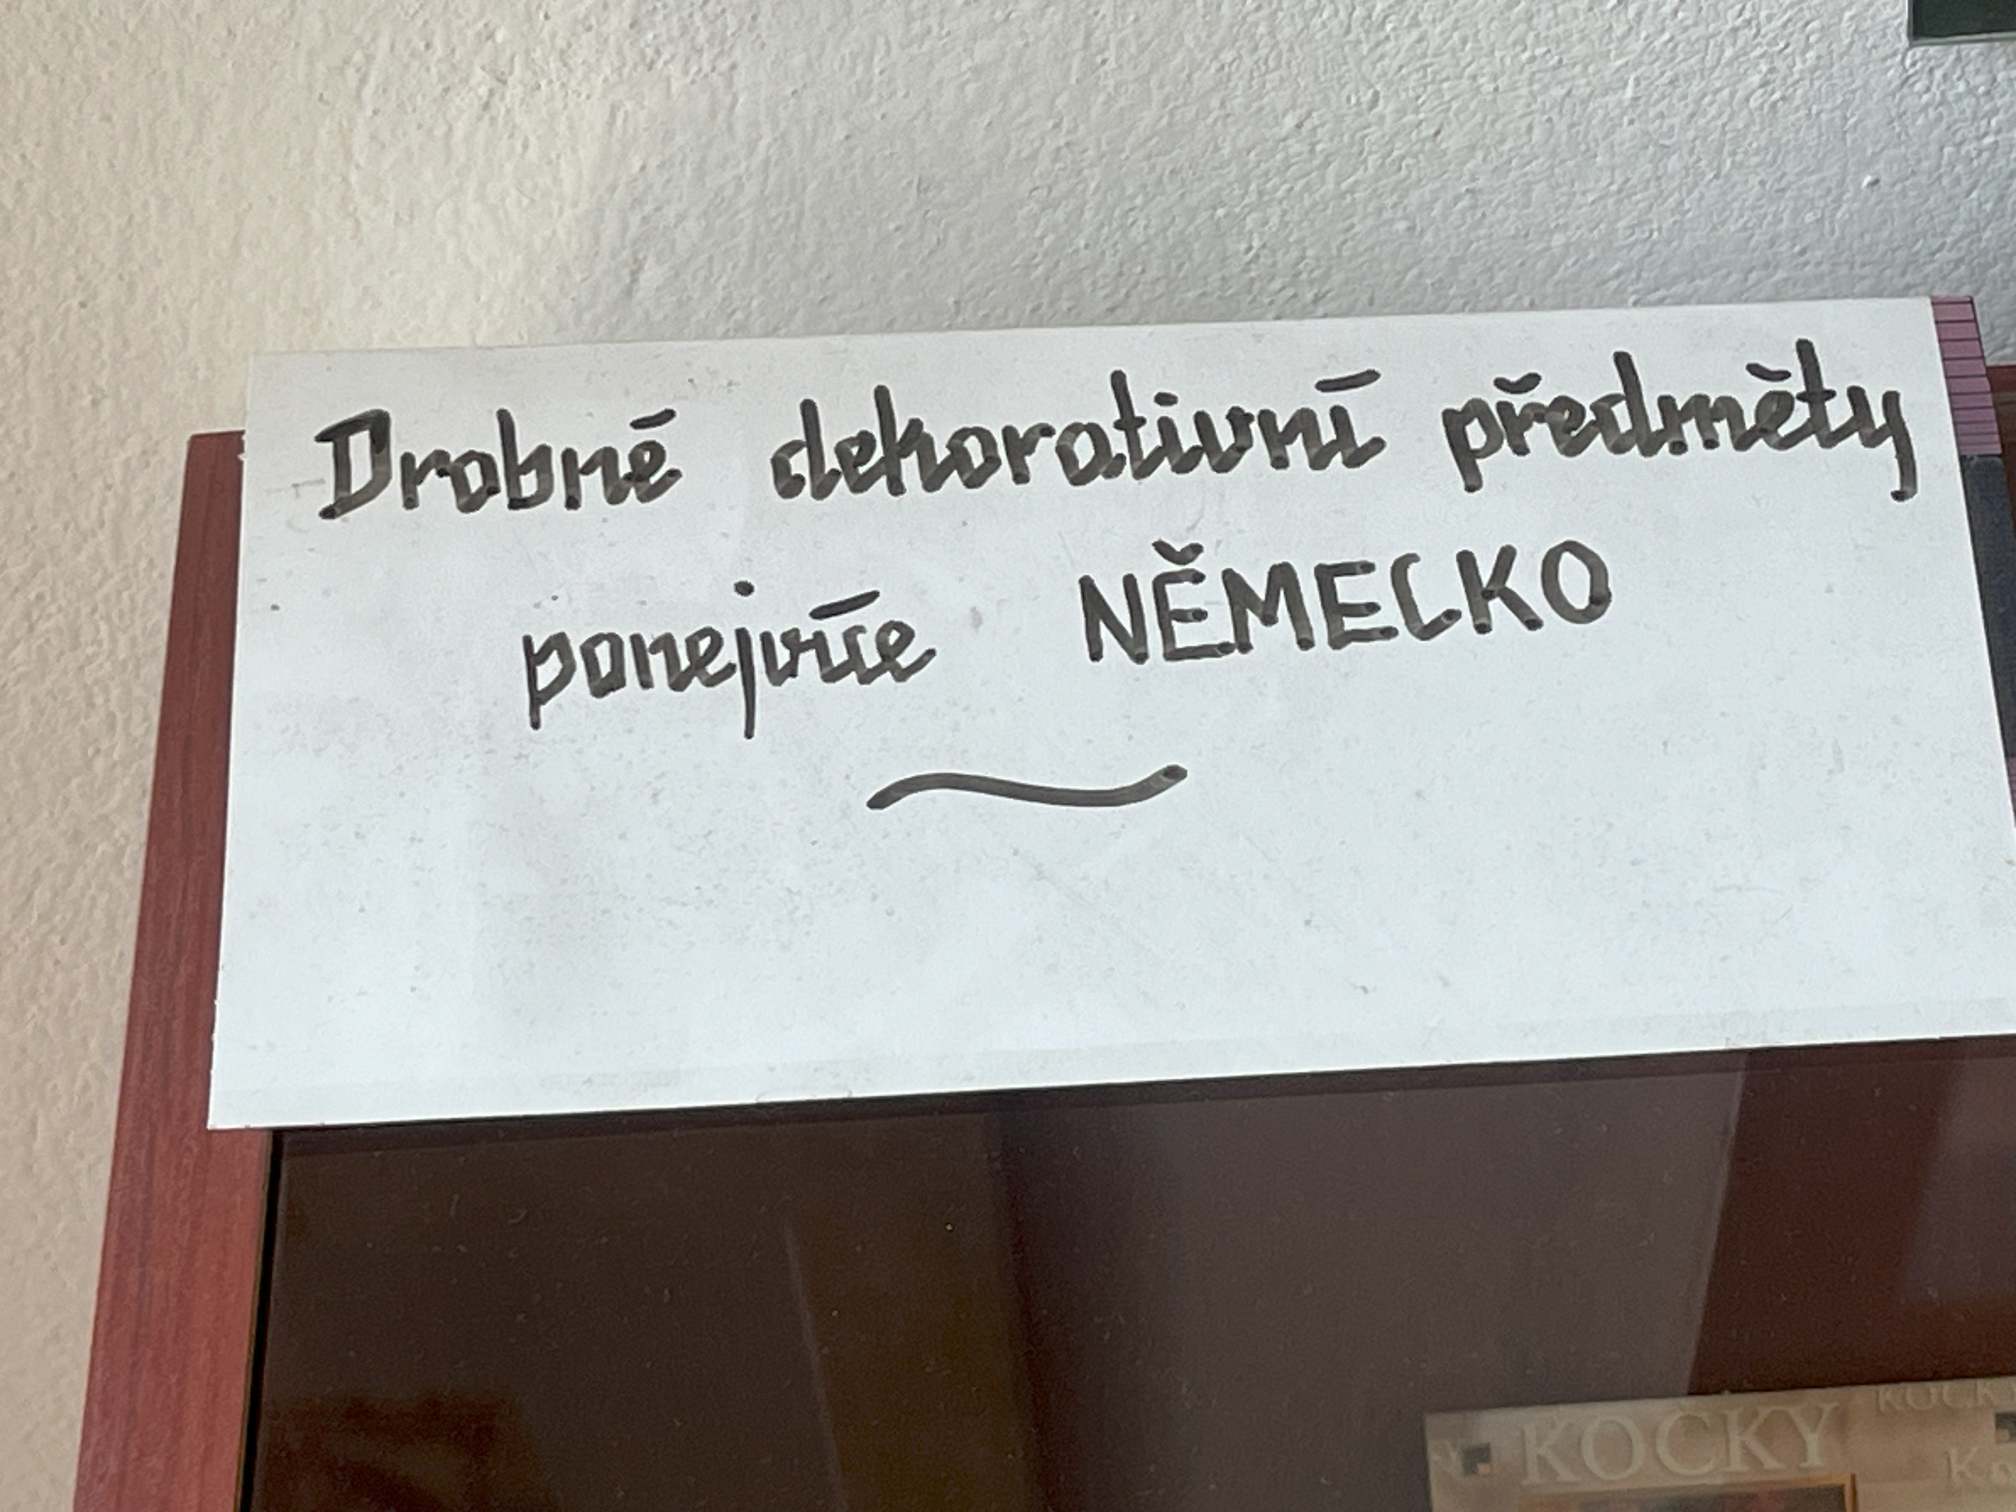 Drobné dekorativní předměty
ponejvíce NĚMECKO
KOČKY